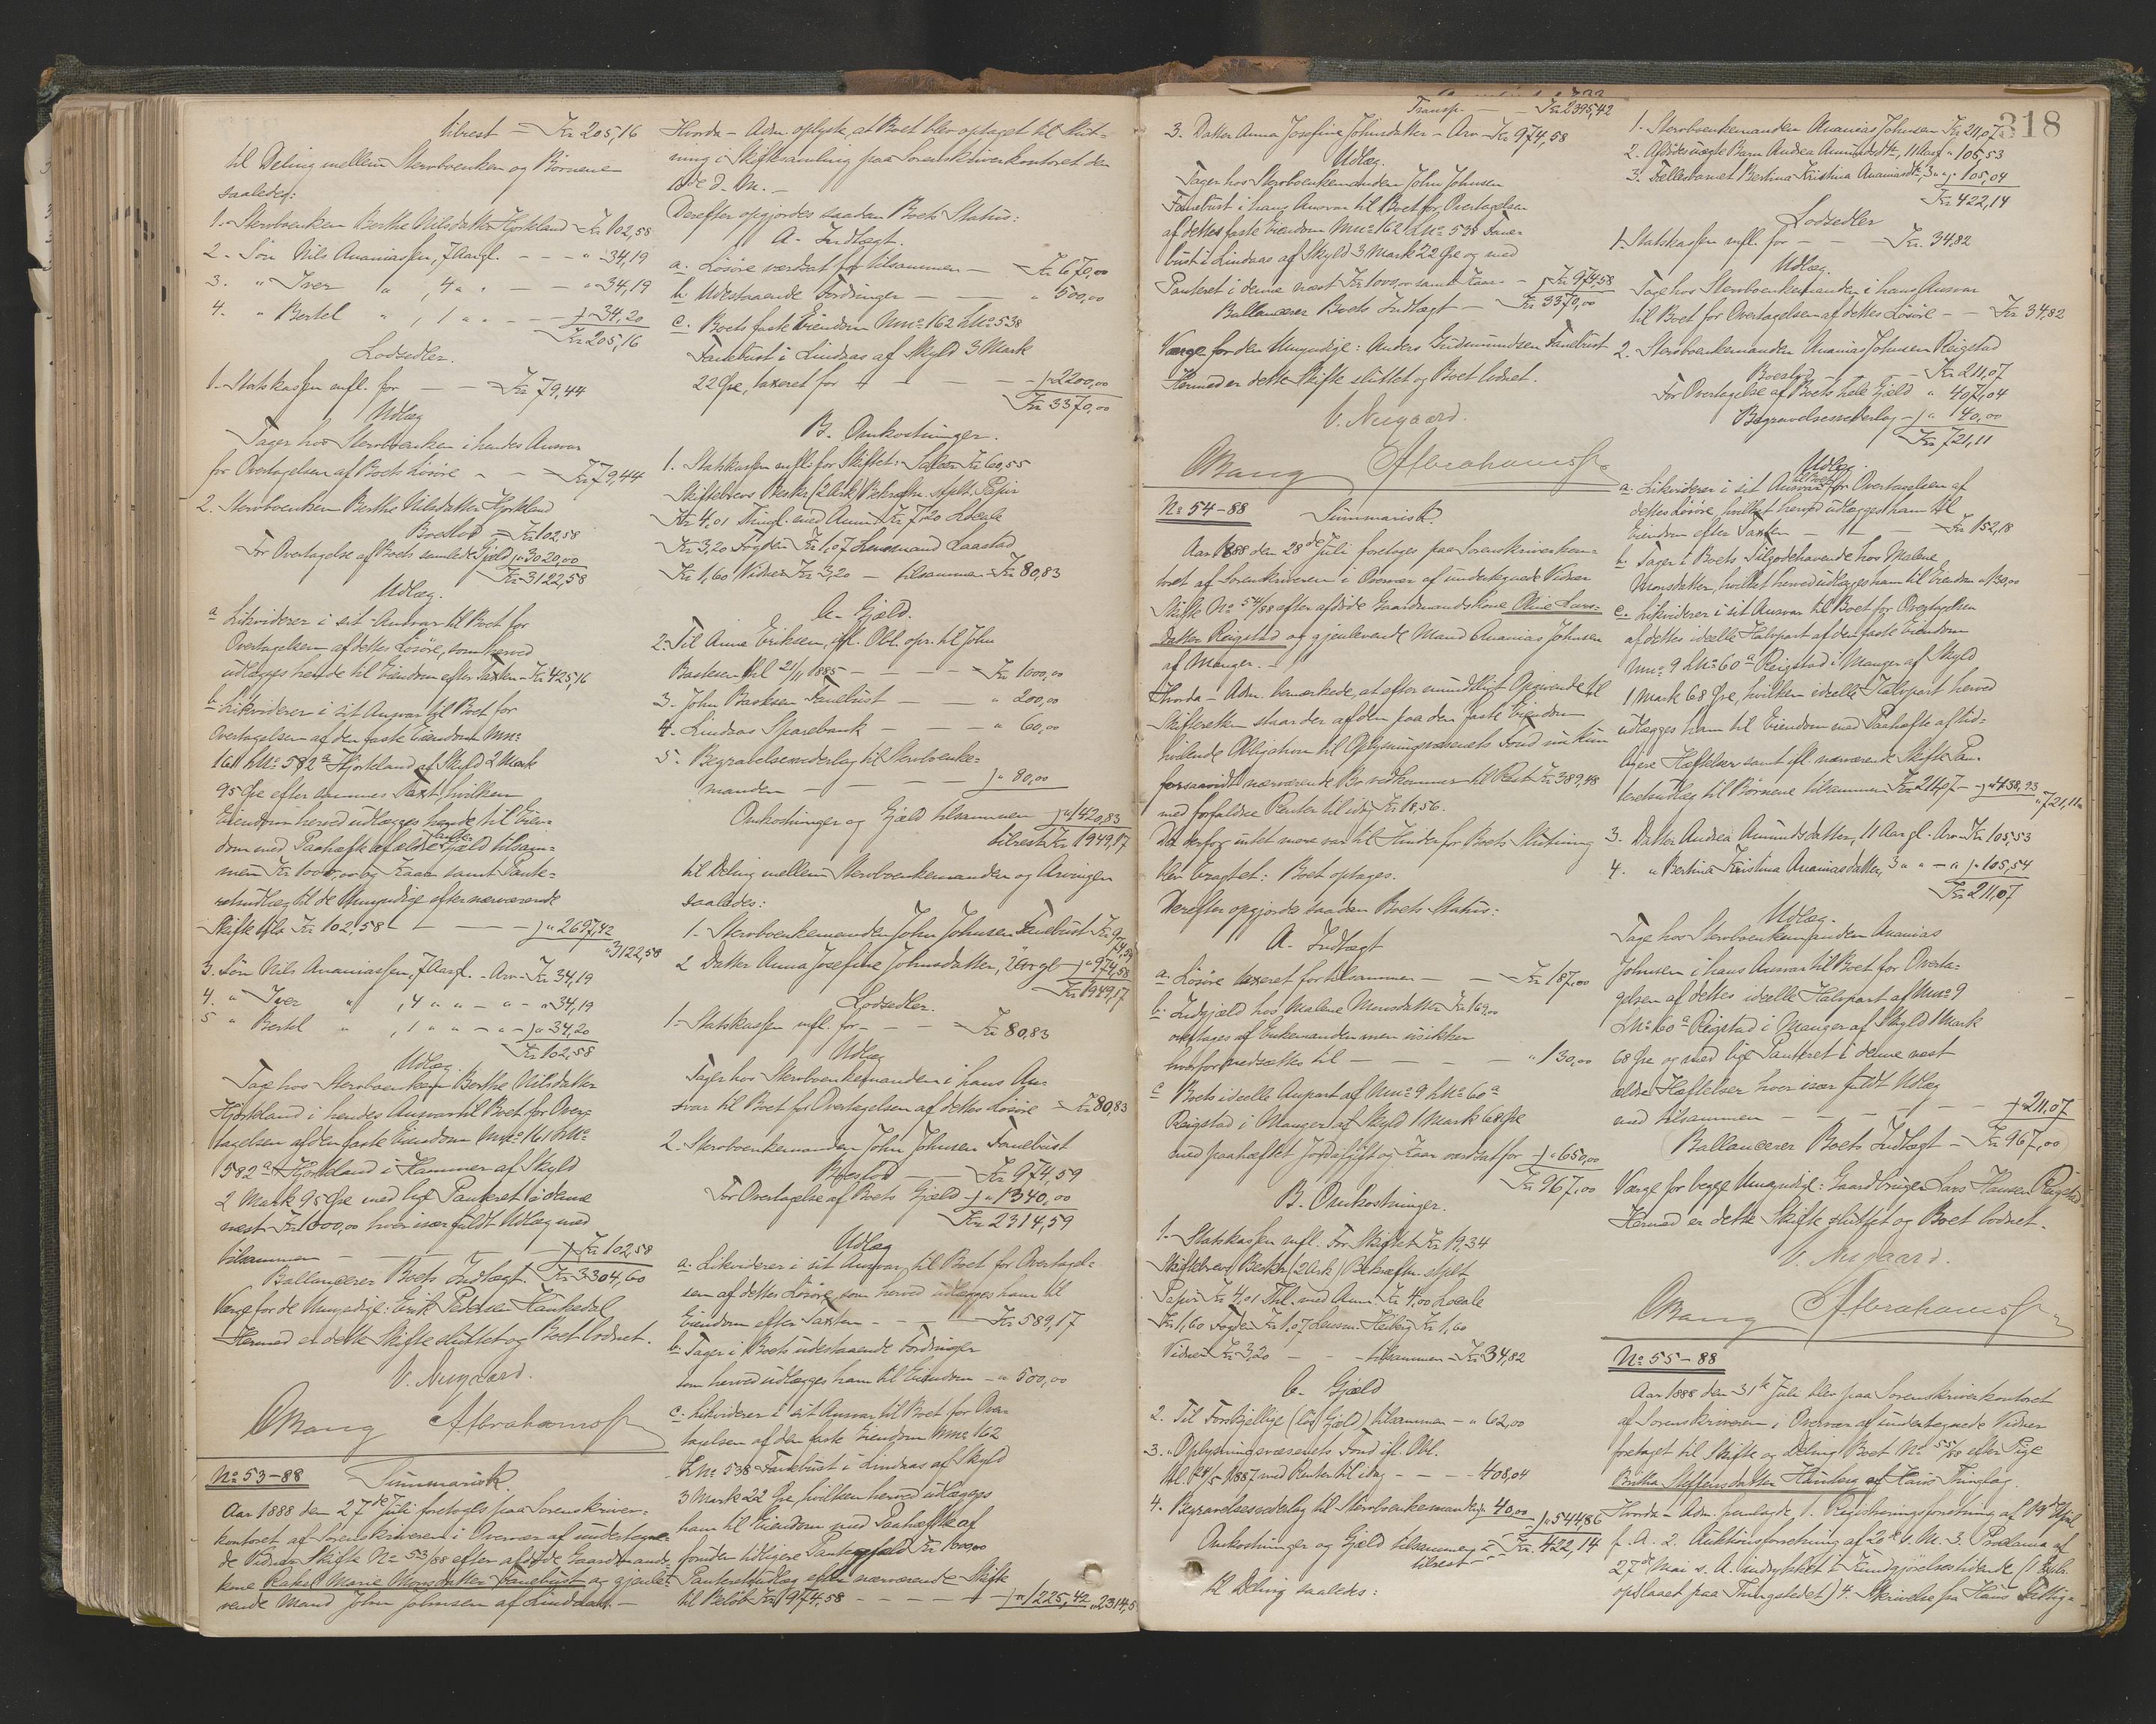 tilrest - Kr 205,16
til Deling mellem Stervboenken og Børnene
saaledes:
1. Stervboenken Berthe Nilsdatter Hjortland - Kr 102,58
2. Søn Nils Ananiassen, 7 Aargl. - - - " 34,19
3. " Iver " , 4 " " - - " 34,19
4. " Bertel " , 1 " " - - " 34,20
Kr 205,16
Lodsedler.
1. Statskassen mfl. for - - - Kr 79,44
Udlæg
Tager hos Stervboenken i hendes Ansvar
for Overtagelsen af Boets Løsøre - - - Kr 79,44
2. Stervboenken Berthe Nilsdatter Hjortland
Boeslod - Kr 102,58
For Overtagelse af Boets samlede Gjæld " 3020,00
Kr 3122,58
Udlæg.
a. Likviderer i sit Ansvar til Boet for
Overtagelsen af dettes Løsøre, som herved
udlægges hende til Eiendom efter Taxten - Kr 425,16
b. Likviderer i sit Ansvar til Boet for
Overtagelsen af den faste Eiendom Mno
161 LNo 582a Hjortland af Skyld 2 Mark
95 Øre efter sammes Taxt, hvilken
Eiendom herved udlægges hende til Eien-
dom med Paahæfte af ældre Gjæld tilsam-
men Kr 1000,00 og Kaar samt Pante-
retsudlæg til de Umyndige efter nærværende
Skifte Kr 102,58 - - - " 2697,42
" 3122,58
3. Søn Nils Ananiassen, 7 Aargl. - Arv - Kr 34,19
4. " Iver " , 4 " " - " - " 34,19
5 " Bertel " , 1 " " - " - " 34,20
Kr 102,58
Udlæg.
Tage hos Stervboenken Berthe Nilsdatter
Hjortland i hendes Ansvar til Boet for Over-
tagelsen af den faste Eiendom Mno 161 LNo
582a Hjortland i Hammer af Skyld
2 Mark 95 Øre med lige Panteret i denne
næst Kr 1000,00 hver især fuldt Udlæg med
tilsammen - - - Kr 102,58
Ballancerer Boets Indtægt. Kr 3304,60
Værge for de Umyndige: Erik Pedersen Hankedal
Hermed er dette Skifte sluttet og Boet lodnet.
V. Neegaard.
CBang Abrahamss
No 53-88 Summarisk.
Aar 1888 den 27de Juli foretoges paa Sorenskriver-
kontoret af Sorenskriveren i Overvær af undertegne-
de Vidner Skifte No 53/88 efter afdøde Gaardmands-
kone Rakel Marie Monsdatter Fanebust og gjenle-
vende Mand John Johnsen af Lindaas -
Hvorda - Adm. oplyste, at Boet blev optaget til Slut-
ning i Skiftesamling paa Sorenskriverkontoret den
10de d. M. -
Derefter opgjordes saadan Boets Status:
A. Indtægt.
a. Løsøre værdsat for tilsammen - Kr 670,00
b. Udestaaende Fordringer - - - " 500,00
c. Boets faste Eiendom Mno 162 LNo 538
Fanebust i Lindaas af Skyld 3 Mark
22 Øre, taxeret for - - - " 2200,00
Kr 3370,00
B. Omkostninger.
1. Statskassen mfl. for Skiftet: Salær Kr 60,55
Skiftebrevs Beskr. (2 Ark) Bekræftn. stplt. Papir
Kr 4,01 Thingl. med Anm. Kr 7,20 Locale
Kr 3,20 Fogden Kr 1,07 Lensmand Laastad
Kr 1,60 Vidner Kr 3,20 - tilsammen - Kr 80,83
C. Gjæld.
2. Til Anna Eriksen, ifl. Obl. opr. til John
Baaksen thl 21/11 1885 - - - Kr 1000,00
3. John Baaksen Fanebust - - - " 200,00
4. Lindaas Sparebank - - - " 60,00
5. Begravelsesvederlag til Stervboenke-
manden - - - " 80,00
Omkostninger og Gjæld tilsammen " 1420,83
tilrest Kr 1949,17
til Deling mellem Stervboenkemanden og Arvingen
saaledes:
1. Stervboenkemanden John Johnsen Fanebust Kr 974,59
2 Datter Anna Josefine Johnsdatter, 2 Aar gl - " 974,58
Kr 1949,17
Lodsedler.
1. Statskassen mfl. for - - - Kr 80,83
Udlæg
Tager hos Stervboenkemanden i hans An-
svar til Boet for Overtagelsen af dettes Løsøre - Kr 80,83
2. Stervboenkemanden John Johnsen Fanebust
Boeslod - - Kr 974,59
For Overtagelse af Boets Gjæld - " 1340,00
Kr 2314,59
Udlæg
a. Likviderer i sit Ansvar til Boet for Overtagel-
sen af dettes Løsøre, som herved udlægges ham til
Eiendom efter Taxten - - - Kr 589,17
b. Tager i Boets udestaaende Fordringer
som herved udlægges ham til Eiendom - " 500,00
c. Likviderer i sit Ansvar til Boet for Over-
tagelsen af den faste Eiendom Mno 162
LNo 538 Fanebust i Lindaas af Skyld
3 Mark 22 Øre, hvilken herved udlægges
ham til Eiendom med Paahæfte af
foruden tidligere Pantegjæld Kr 1000,00
Panteretsudlæg efter nærværende Skifte
til Beløb Kr 974,58 - - - " 1225,42 " 2314,5
Transp. - Kr 2395,42
3. Datter Anna Josefine Johnsdatter - Arv - Kr 974,58
Udlæg.
Tager hos Stervboenkemanden John Johnsen
Fanebust i hans Ansvar til Boet for Overtagelsen
af dettes faste Eiendom Mno 162 LNo 538 Fane-
bust i Lindaas af Skyld 3 Mark 22 Øre og med
Panteret i denne næst Kr 1000,00 samt Kaar - Kr 974,58
Ballancerer Boets Indtægt - Kr 3370,00
Værge for den Umyndige: Anders Gudmundsen Fanebust
Hermed er dette Skifte sluttet og Boet lodnet.
V. Neegaard.
CBang Abrahamss
No 54-88 Summarisk.
Aar 1888 den 28de Juli foretages paa Sorenskriverkon-
toret af Sorenskriveren i Overvær af undertegnede Vidner
Skifte No 54/88 efter afdøde Gaardmandskone Oline Lars-
datter Reigstad og gjenlevende Mand Ananias Johnsen
af Manger. -
Hvorda - Adm. bemærkede, at efter mundligt Opgivende til
Skifteretten staar der af den paa den faste Eiendom
hvilende Obligation til Oplysningsvæsenets Fond nu kun
forsaavidt nærværende Bo vedkommer til Rest Kr 389,48
med forfaldne Renter til idag Kr 18,56.
Da derfor intet mere var til Hinder for Boets Slutning
blev eragtet: Boet optages.
Derefter opgjordes saadan Boets Status:
A. Indtægt
a. Løsøre taxeret for tilsammen - - Kr 187,00
b. Indgjæld hos Malene Monsdatter Kr 169,00
overtages af Enkemanden men usikker
hvorfor nedsættes til - - - " 130,00
c Boets ideelle Anpart af Mno 9 LNo 60a
Reigstad i Manger af Skyld 1 Mark 68 Øre
med paahæftet Jordafgift og Kaar værdsat for - " 650,00
Kr 967,00
B. Omkostninger.
1. Statskassen mfl. For Skiftet Kr 19,34
Skiftebrevs Beskr. (2 Ark) Bekræftn. stplt
Papir Kr 4,01 Thl. med Anm. Kr 4,00 Locale
Kr 1,60 Fogden Kr 1,07 Lensm. Heiberg Kr 1,60
Vidner Kr 3,20 - - tilsammen - Kr 34,82
C. Gjæld
2. Til Forskjellige (løs Gjæld) tilsammen - " 62,00
3. " Oplysningsvæsenets Fond ifl. Obl.
thl. 24/5 1887 med Renter til idag - - - 408,04
4. Begravelsesvederlag til Stervboenkemanden 40,00 " 544,86
Omkostninger og Gjæld tilsammen
tilrest - Kr. 422,14
til Deling saaledes:
318
1. Stervboenkemanden Ananias Johnsen Kr 211,07
2. Afdødes uægte Barn Andrea Amundsdtr, 11 Aargl " 105,53
3. Fællesbarnet Bertina Kristina Ananiasdtr, 3 " " " 105,04
Kr 422,14
Lodsedler
1. Statskassen mfl. for - - Kr. 34,82
Udlæg.
Tage hos Stervboenkemanden i hans Ansvar
til Boet for Overtagelsen af dettes Løsøre - - Kr 34,82
2. Stervboenkemanden Ananias Johnsen Reigstad
Boeslod - - - Kr 211,07
For Overtagelse af Boets hele Gjæld " 407,04
Begravelsesvederlag - " 140,00
Kr 721,11
Udlæg.
a. Likviderer i sit Ansvar til Boet for Overtagelsen af
dettes Løsøre, hvilket herved udlægges ham til
Eiendom efter Taxten - - - Kr 152,18
b. Tager i Boets Tilgodehavende hos Malene
Monsdatter, hvilket herved udlægges ham til Eiendom " 130,00
c. Likviderer i sit Ansvar til Boet for Overtagelsen
af dettes ideelle Halvpart af den faste Eiendom
Mno 9 LNo 60a Reigstad i Manger af Skyld
1 Mark 68 Øre, hvilken ideelle Halvpart herved
udlægges ham til Eiendom med Paahæfte af tid-
ligere Hæftelser samt ifl. nærværende Skifte Pan-
teretsudlæg til Børnene tilsammen Kr 211,07 - " 458,93
" 721,11
3. Datter Andrea Amundsdatter, 11 Aar gl. - Arv Kr 105,53
4. " Bertina Kristina Ananiasdatter, 3 " " - " " 105,54
Kr 211,07
Udlæg.
Tage hos Stervboenkemanden Ananias
Johnsen i hans Ansvar til Boet for Overta-
gelsen af dettes ideelle Halvpart af Mno 9
LNo 60a Reigstad i Manger af Skyld 1 Mark
68 Øre og med lige Panteret i denne næst
ældre Hæftelser hver især fuldt Udlæg
med tilsammen - - - - " 211,07
Ballancerer Boets Indtægt - Kr 967,00
Værge for begge Umyndige: Gaardbruger Lars Hansen Reigstad
Hermed er dette Skifte sluttet og Boet lodnet.
V. Neegaard.
CBang Abrahamss
No 55-88
Aar 1888 den 31te Juli blev paa Sorenskriverkontoret
af Sorenskriveren i Overvær af undertegnede Vidner
foretaget til Skifte og Deling Boet No 55/88 efter Pige
Britha Steffensdatter af Haus Thinglag.
Hvorda - Adm. fremlagde 1. Registreringsforretning af 19de April
f. A. 2. Auktionsforretning af 20de s. M. 3. Proclama af
27de Mai s. A. indrykket i Kundgjørelsestidende (1 Expl.
opslaaet paa Thingstedet) 4. Skrivelse fra Haus